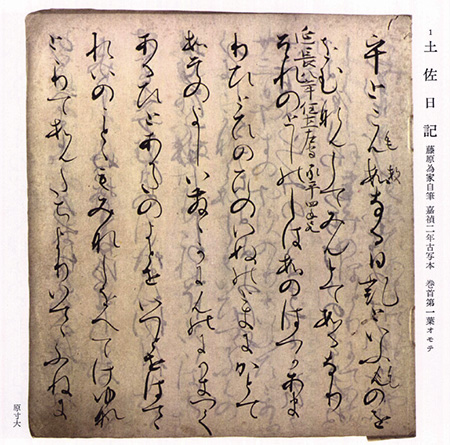 1 土佐日記 藤原為家自筆 嘉禎二年古写本 巻首第一葉オモテ
乎とこもすなる日記といふものを
をむなもしてみんとてするなり
延長八年任土左守 承平四年
それのとしのしはすのはつかあま
りひとひのひのいぬのときにかとて
すそのよしいさゝかにものにかきつく
あるひとあかたのよとせいつとせはてゝ
れいのことゝもみなしをへてけゆ
とりてすむたちよりいてゝふねに
原寸大